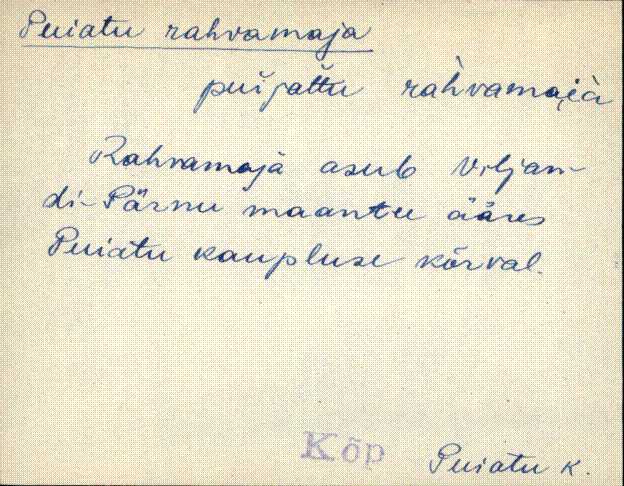 Puiatu rahvamaja
puijattu ràhvamaià
Rahvamaja asub Viljan-
di-Pärnu maantee ääres
Puiatu kaupluse kõrval.
Kõp
Puiatu k.